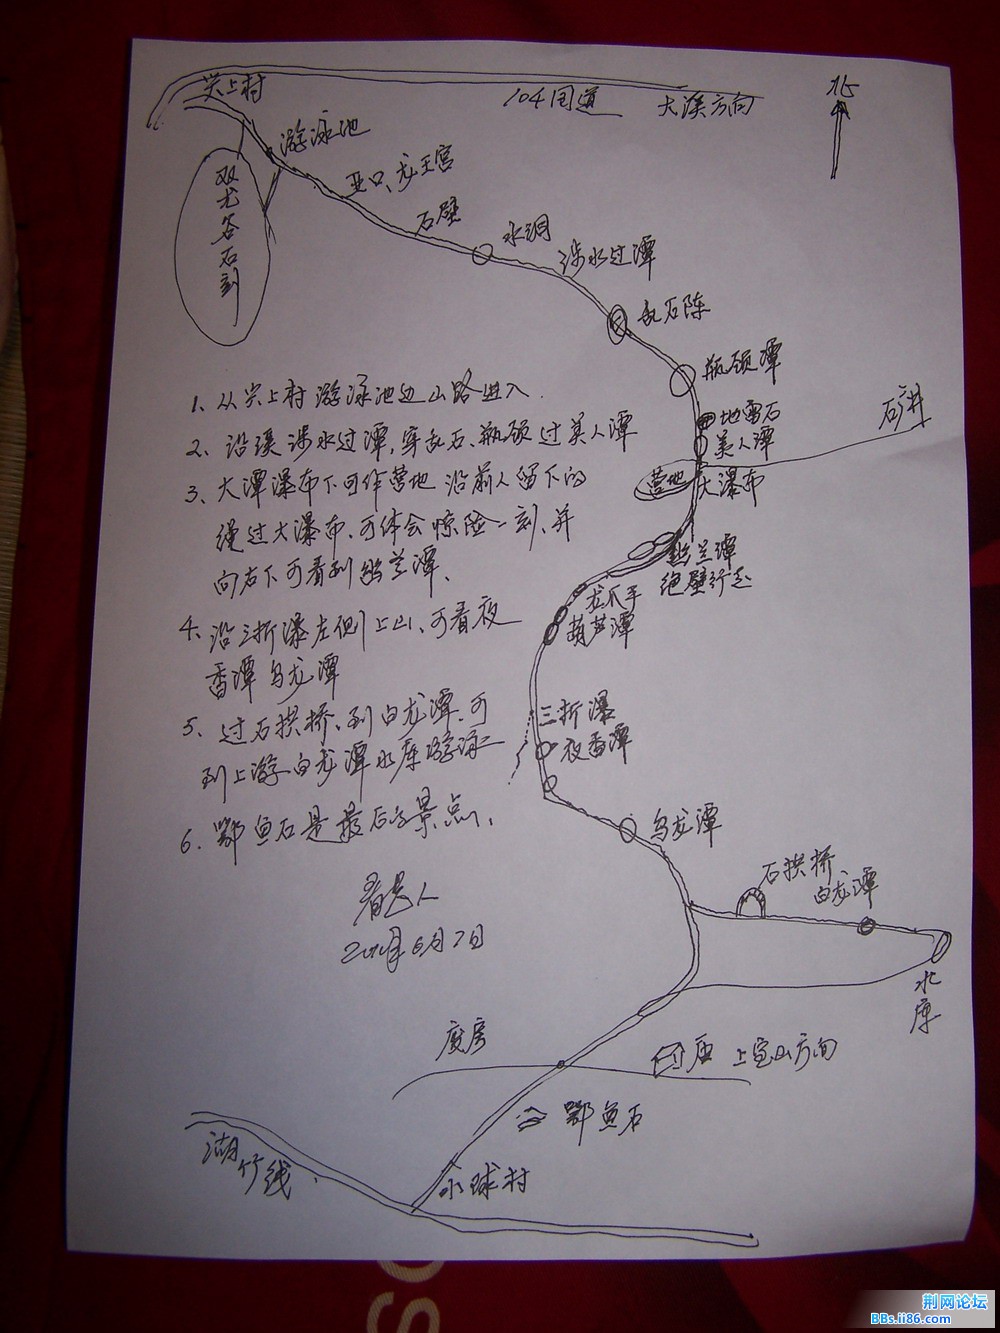 尖上村
104国道
大溪方向
北
游泳池
亚口、龙王宫
双龙各石刻
石壁
水洞
涉水过潭
乱石陈
瓶颈潭
地雷石
美人潭
石矿井
营地
大瀑布
幽兰潭
绝壁行走
龙爪手
葫芦潭
1、从尖上村游泳池边山路进入.
2、沿溪涉水过潭,穿乱石、瓶颈过美人潭
3、大潭瀑布下可作营地 沿前人留下的
绳过大瀑布、可体会惊险一刻、并
向右下可看到幽兰潭、
4、沿三折瀑左侧上山、可看夜
香潭 乌龙潭
5、过石拱桥、到白龙潭、可
到上游白龙潭水库游泳
6、鄂鱼石是最后的景点、
三折瀑
夜香潭
乌龙潭
石拱桥
白龙潭
水库
6月7日
废房
庙 上宝山方向
鄂鱼石
湖竹线
水球村
荆网论坛
BBs.ii86.com